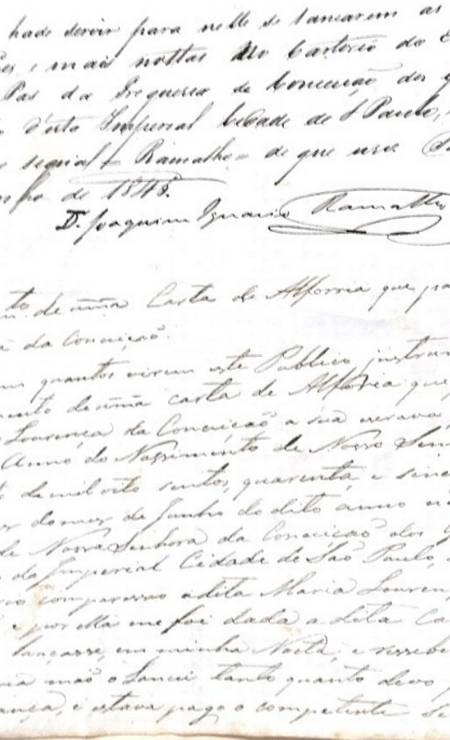 hade servir para nelle se lancarem as
e mais nottas do Cartorio do
Pas da Freguesia de Conceição dos
d'esta Imperial Cidade de S Paulo,
signal = Ramalho = de que uso
de 1848.
D. Joaquim Ignacio Ramalho
to de uma Carta de Alforria que pa
da Conceição.
quantos virem este Publico instrum
mento de uma carta de Alforria que
Lourença da Conceição a sua escrava
Anno do Nascimento de Nosso Senn
de mil oito sentos, quarenta, e sinco
do mes de Junho do dito anno
de Nossa Senhora da Conceição dos G
da Imperial Cidade de São Paulo
comparesseo a dita Maria Louren
e por Ella me foi dada a dita Ca
lançasse, em minha Notta, e ressebe
mão o Lancei tanto quanto devo
ança, e estava pago o competente Se